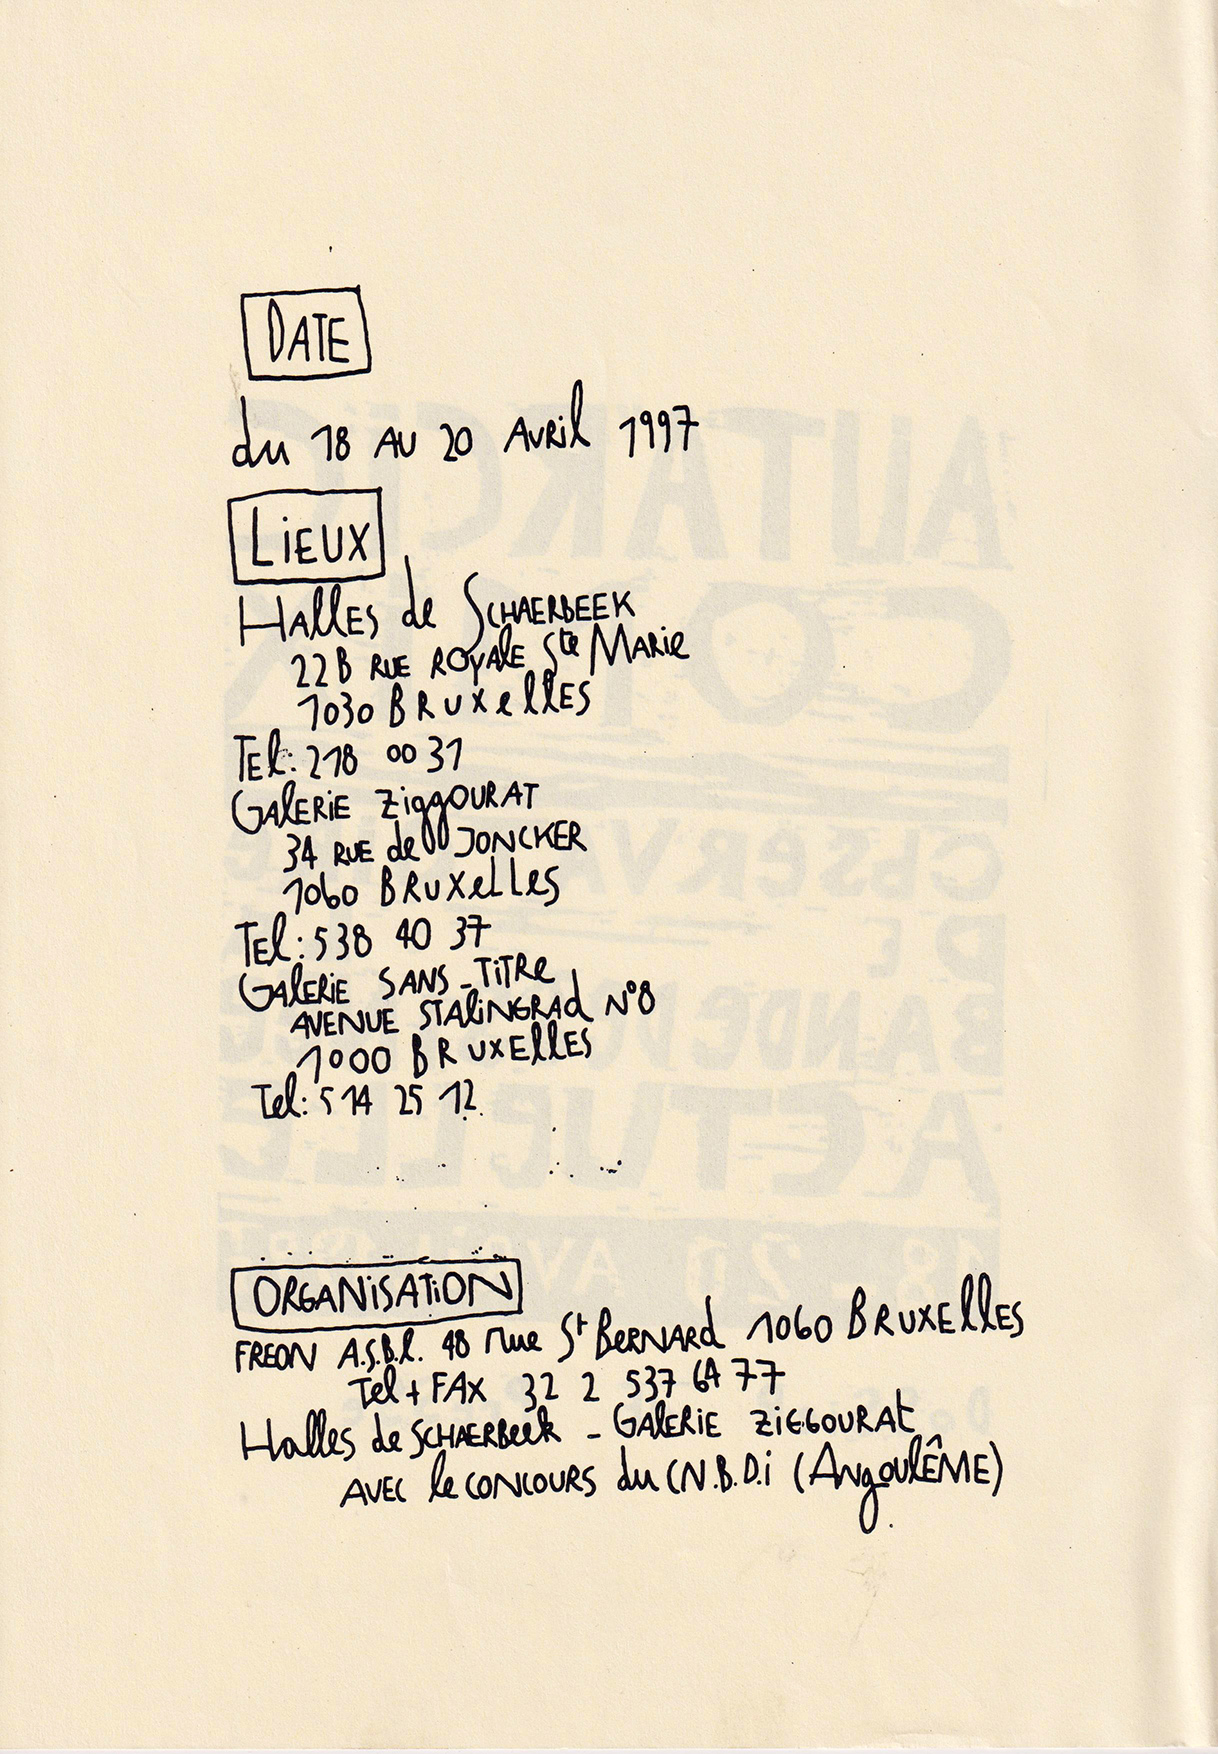 DATE
du 18 AU 20 AVRil 1997
LiEUX
HAllES de SCHAERBEEK
22B RUE ROYAlE Ste MARie
1030 BRUXellES
TEl: 218 00 31
GAlERiE ZiggOURAT
34 RUE de JONCKER
1060 BRUXelles
Tel: 538 40 37
GAlERiE SANS_TiTRe
AVENUE STAliNGRAd N°8
1000 BRUXEllES
Tel: 514 25 12
ORGANiSATiON
FREON A.S.B.l. 48 rue St BERNARd 1060 BRUXEllES
Tel + FAX 32 2 537 64 77
Halles de SCHAERBeek - GAlERiE ZiGGOURAt
AVEC le CONCOURS du CN.B.D.i (ANgoulÊME)
AUTARCIC
COMIX
ObserVA
DE
BANDE
ACTUELLE